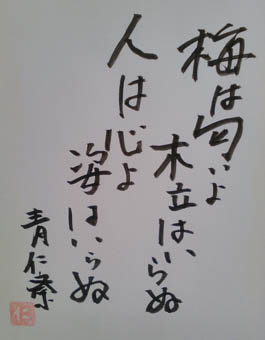 梅は匂いよ
木立はいらぬ
人は心よ
姿はいらぬ
青仁寮
仁